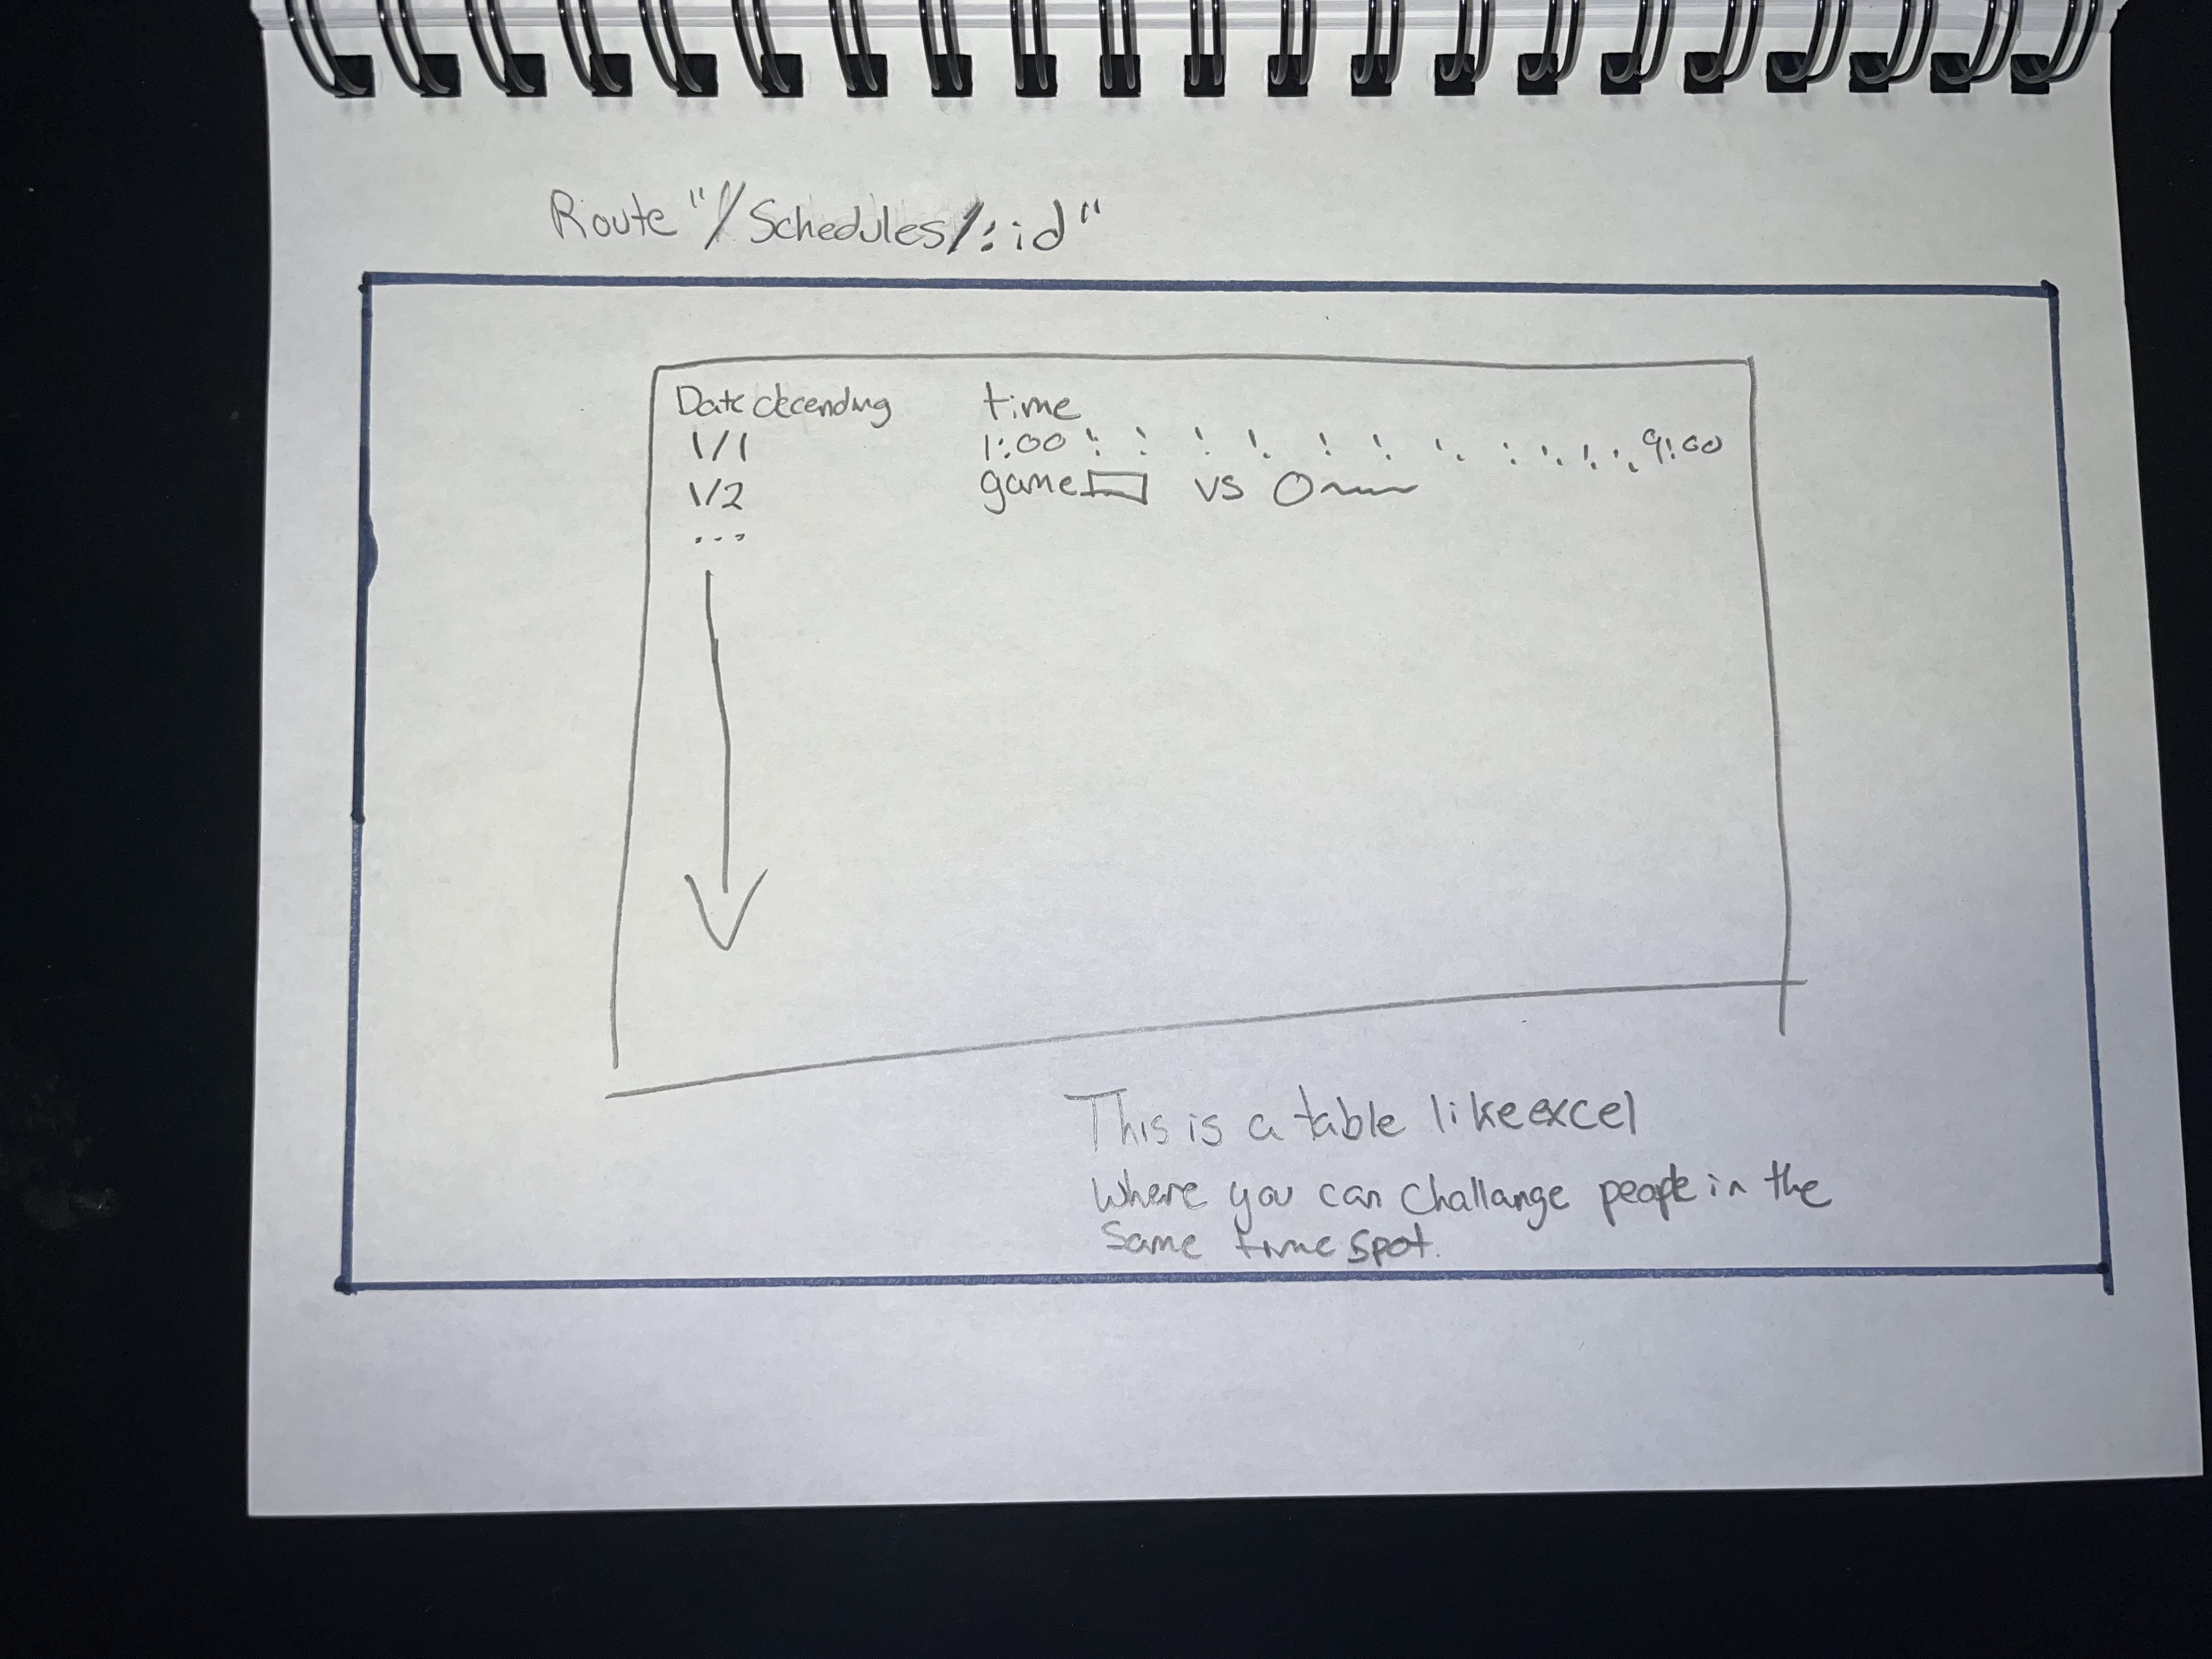 Route "/Schedules/:id"
Date decending time
1/1 1:00 : : : : : : : : : : : 9:00
1/2 game vs
...
This is a table like excel
where you can challange people in the
same time spot.